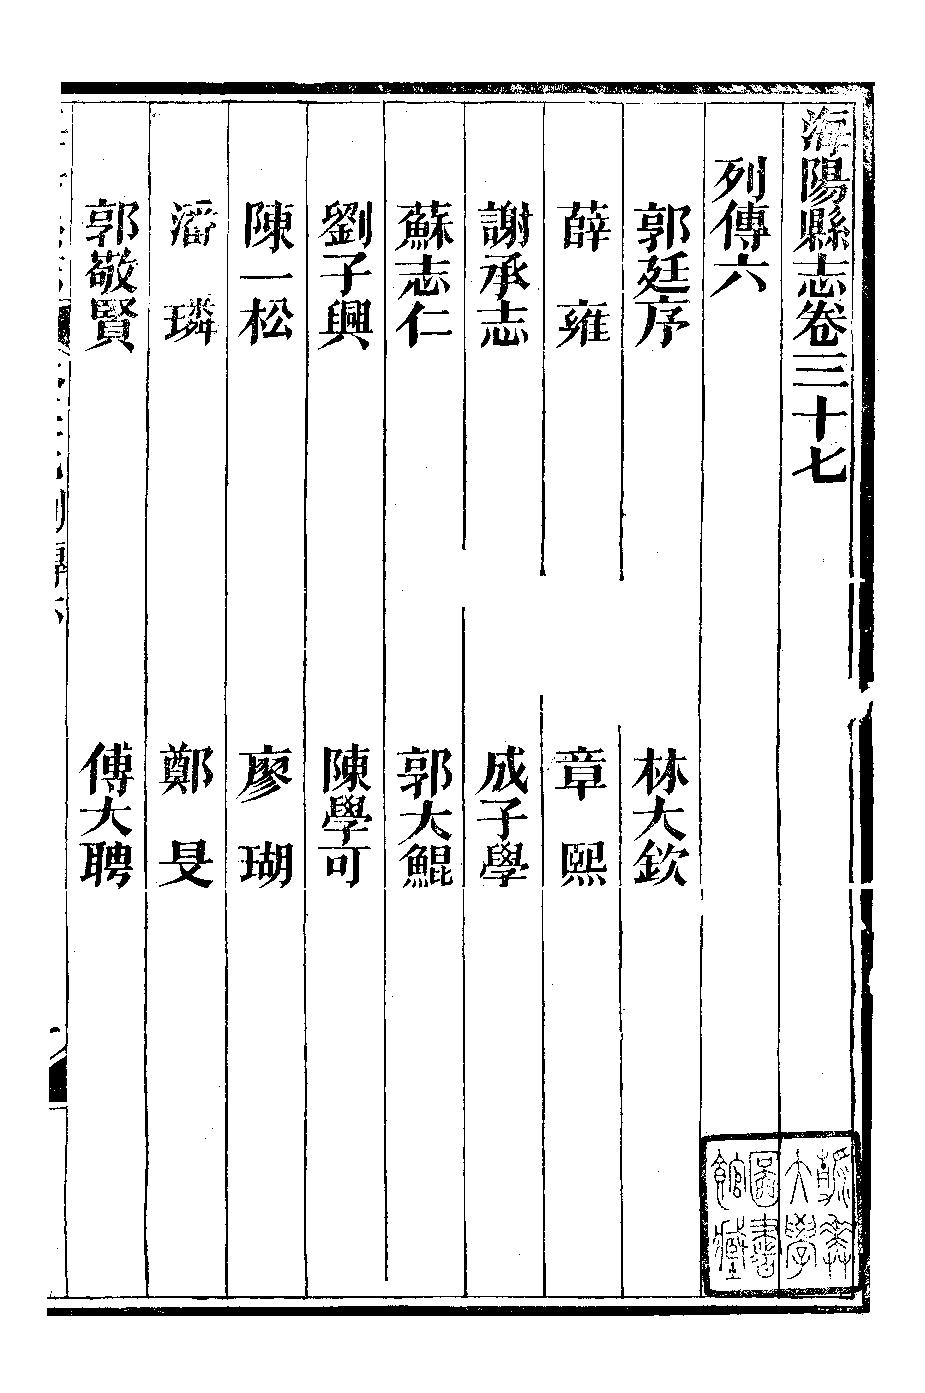 海陽縣志卷三十七
列傳六
郭廷序 林大欽
薛雍 章熙
謝承志 成子學
蘇志仁 郭大鯤
劉子興 陳學可
陳一松 廖瑚
潘璘 鄭旻
郭敬賢 傅大聘
大學
圖書
館藏